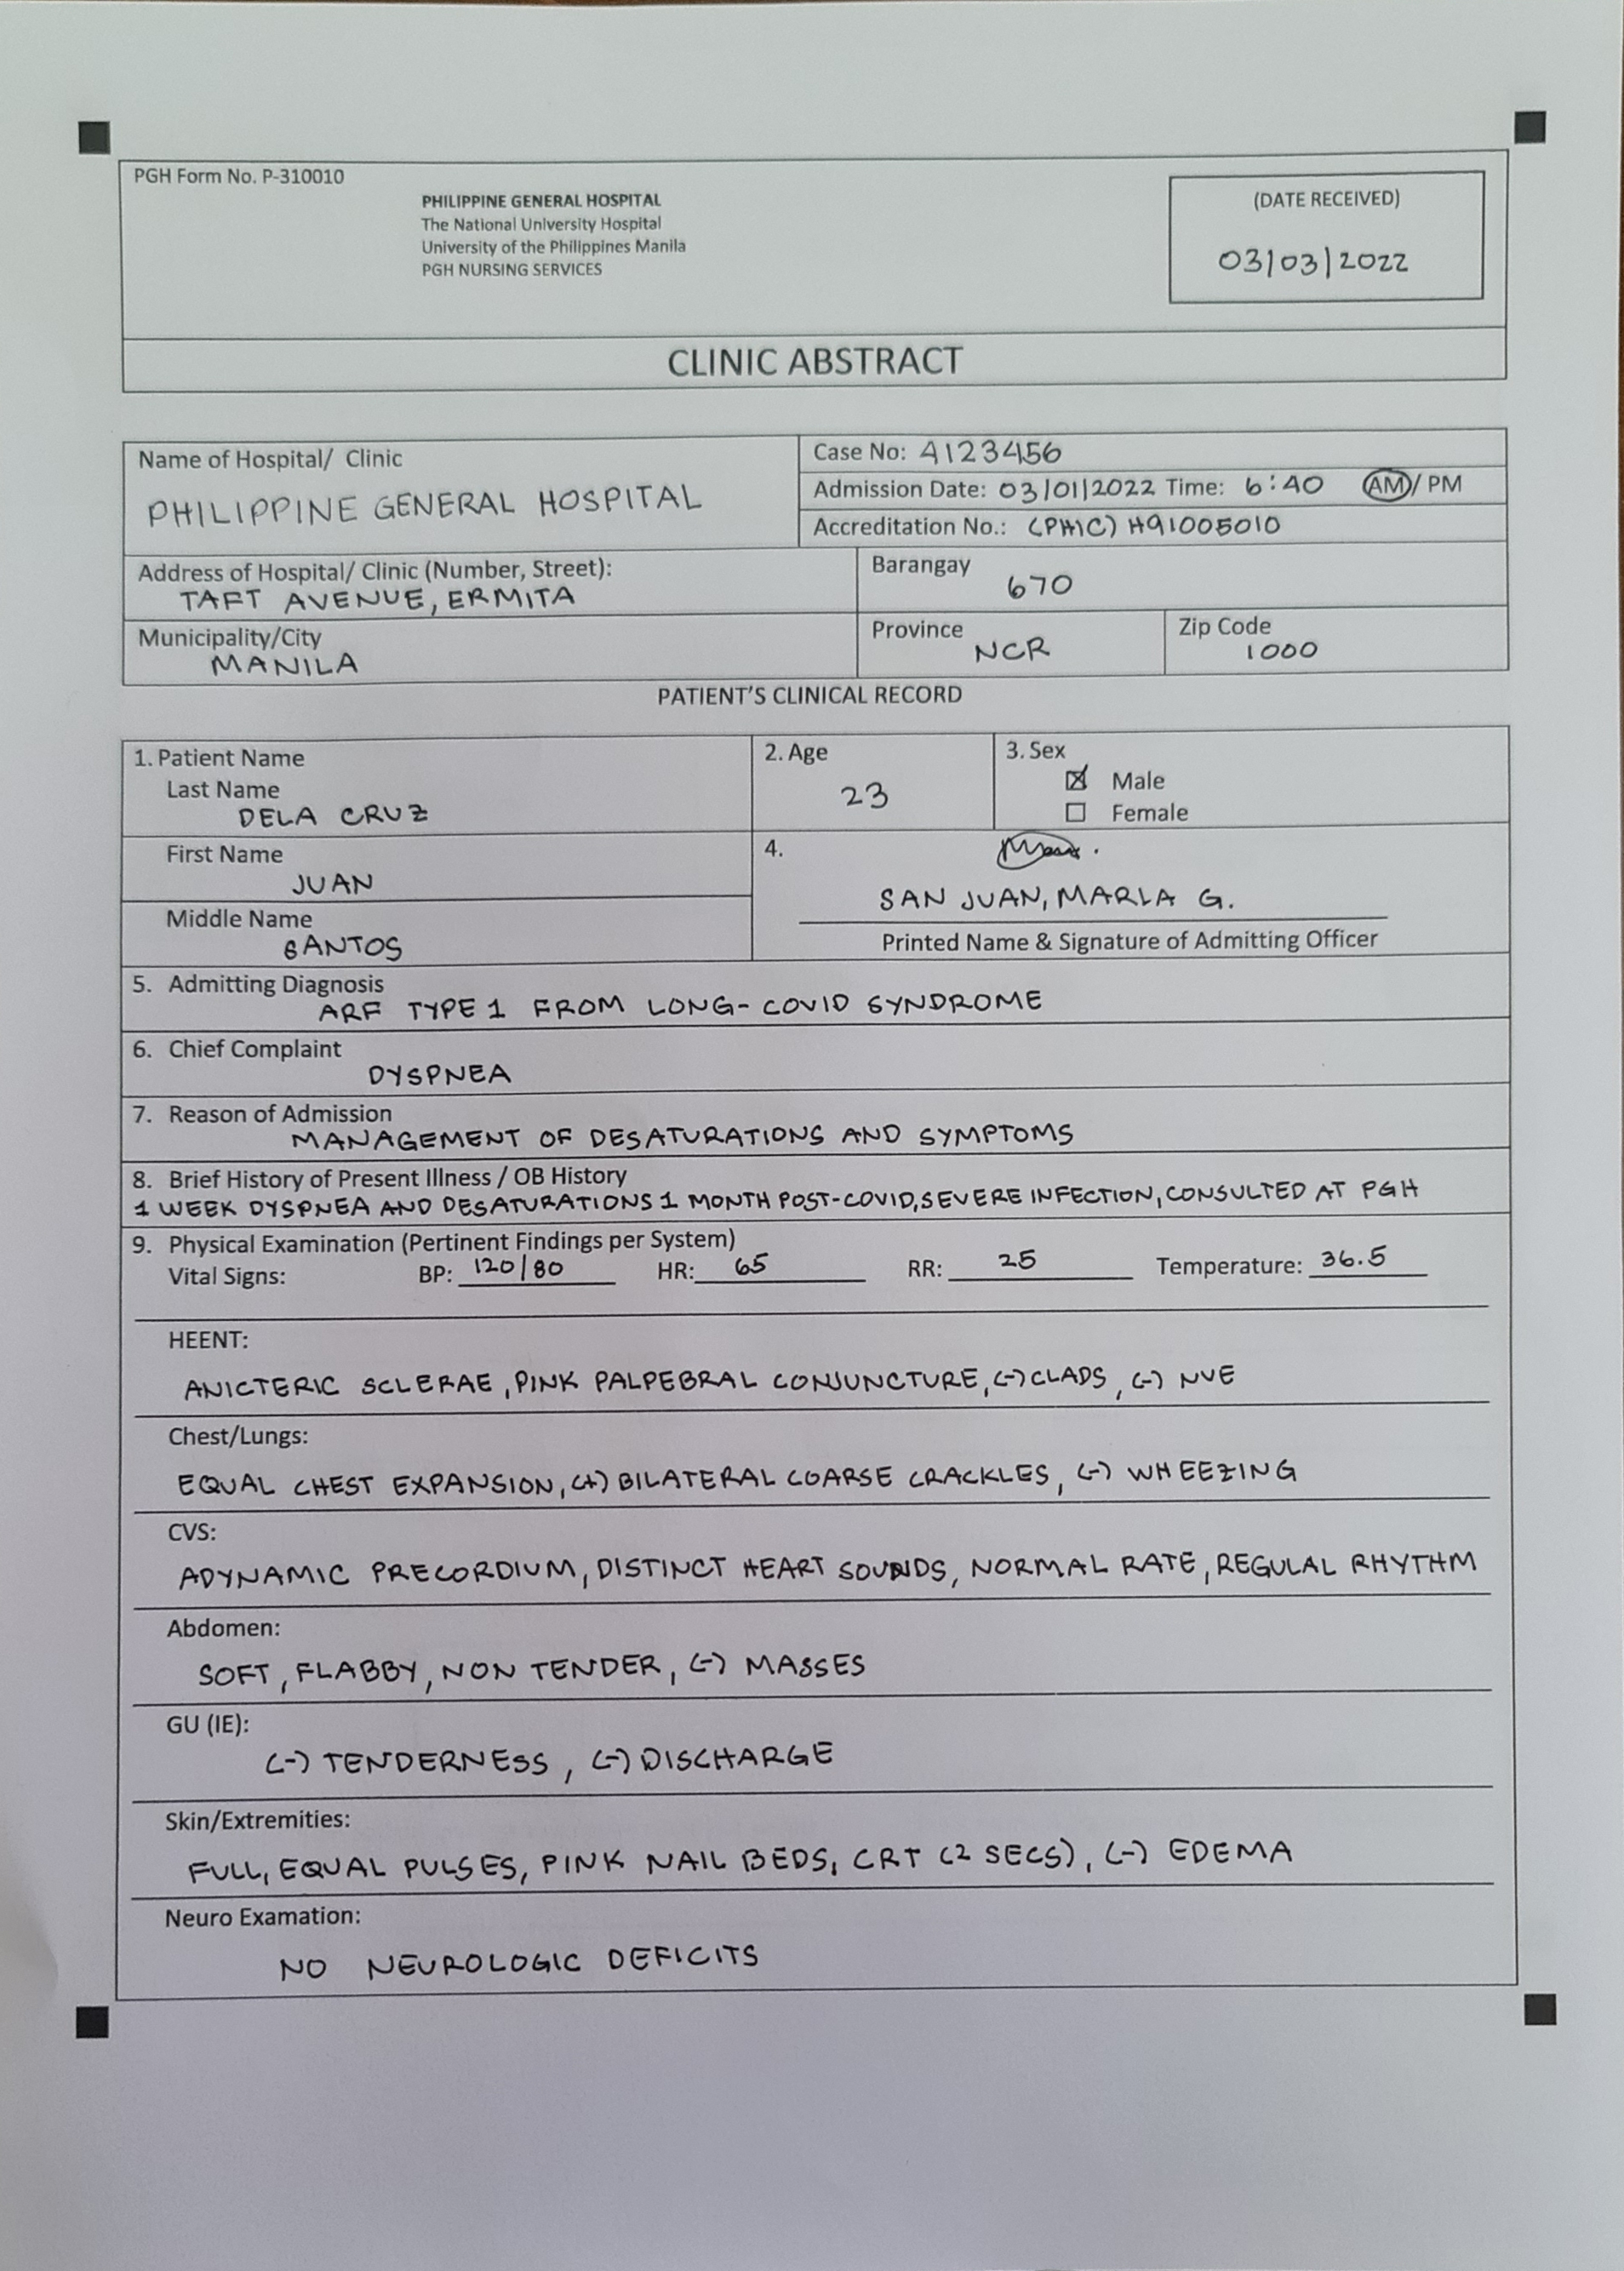 PGH Form No. P-310010
PHILIPPINE GENERAL HOSPITAL
The National University Hospital
University of the Philippines Manila
PGH NURSING SERVICES
(DATE RECEIVED)
03/03/2022
CLINIC ABSTRACT
Name of Hospital/ Clinic
PHILIPPINE GENERAL HOSPITAL
Case No: A123456
Admission Date: 03/01/2022 Time: 6:40 AM/ PM
Accreditation No.: (PHIC) H91005010
Address of Hospital/ Clinic (Number, Street):
TAFT AVENUE, ERMITA
Barangay
670
Municipality/City
MANILA
Province
NCR
Zip Code
1000
PATIENT'S CLINICAL RECORD
1. Patient Name
Last Name
DELA CRUZ
2. Age
23
3. Sex
☒ Male
☐ Female
First Name
JUAN
Middle Name
SANTOS
4.
SAN JUAN, MARIA G.
Printed Name & Signature of Admitting Officer
5. Admitting Diagnosis
ARF TYPE 1 FROM LONG-COVID SYNDROME
6. Chief Complaint
DYSPNEA
7. Reason of Admission
MANAGEMENT OF DESATURATIONS AND SYMPTOMS
8. Brief History of Present Illness / OB History
1 WEEK DYSPNEA AND DESATURATIONS 1 MONTH POST-COVID, SEVERE INFECTION, CONSULTED AT PGH
9. Physical Examination (Pertinent Findings per System)
Vital Signs: BP: 120/80 HR: 65 RR: 25 Temperature: 36.5
HEENT:
ANICTERIC SCLERAE, PINK PALPEBRAL CONJUNCTURE, (-) CLADS, (-) NVE
Chest/Lungs:
EQUAL CHEST EXPANSION, (+) BILATERAL COARSE CRACKLES, (-) WHEEZING
CVS:
ADYNAMIC PRECORDIUM, DISTINCT HEART SOUNDS, NORMAL RATE, REGULAL RHYTHM
Abdomen:
SOFT, FLABBY, NON TENDER, (-) MASSES
GU (IE):
(-) TENDERNESS, (-) DISCHARGE
Skin/Extremities:
FULL, EQUAL PULSES, PINK NAIL BEDS, CRT (2 SECS), (-) EDEMA
Neuro Examation:
NO NEUROLOGIC DEFICITS